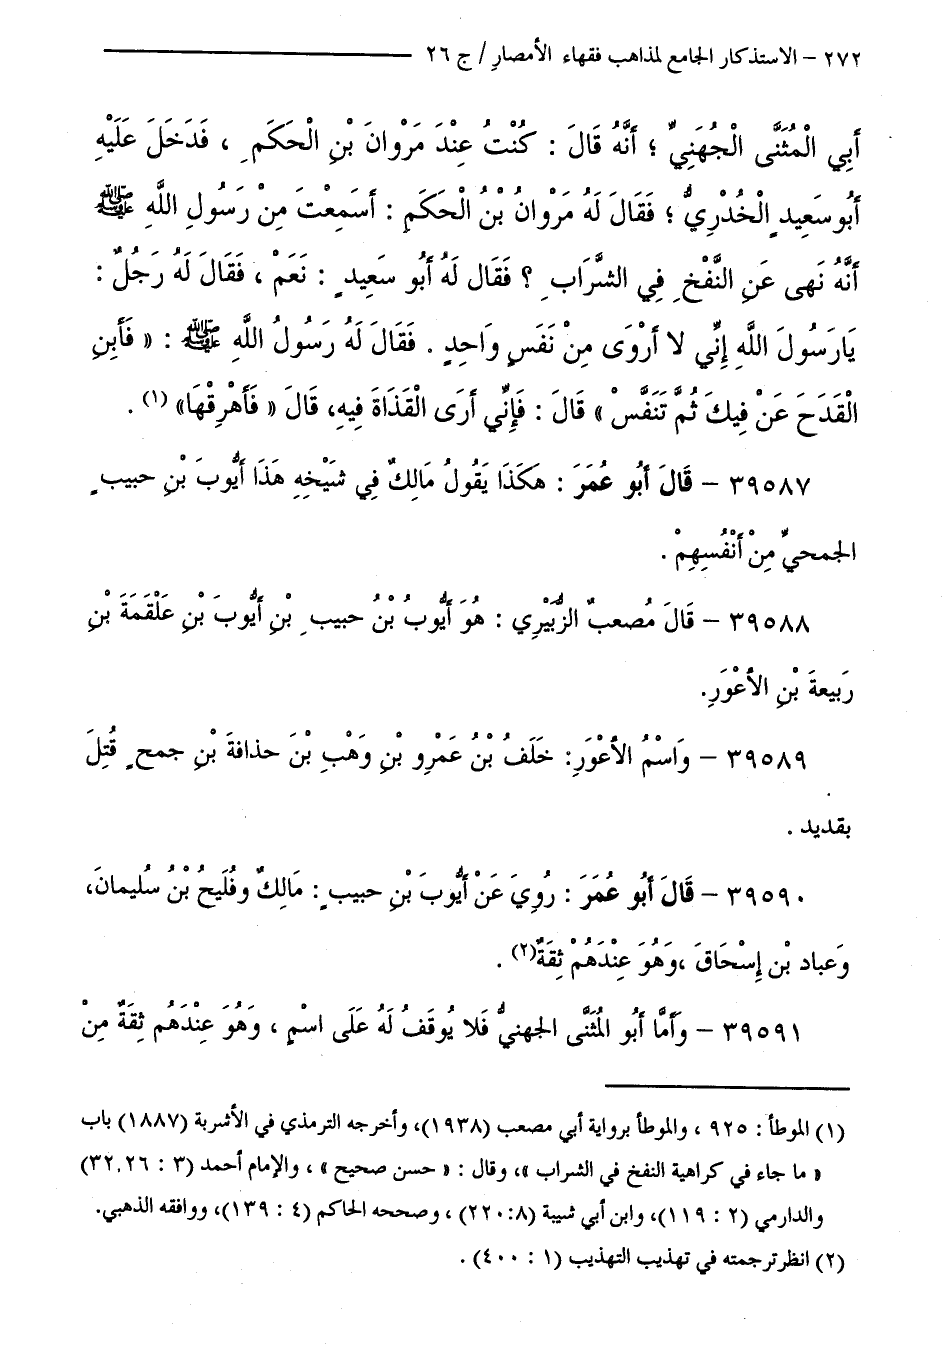 ٢٧٢ - الاستذكار الجامع لمذاهب فقهاء الأمصارِ / ج ٢٦
أَبِي الْمُثَنَّى الْجُهَنِيِّ ؛ أَنَّهُ قَالَ : كُنْتُ عِنْدَ مَرْوانَ بْنِ الْحَكَمِ ، فَدَخَلَ عَلَيْهِ
أَبُو سَعِيدٍ الْخُدْرِيُّ ؛ فَقَالَ لَهُ مَرْوانُ بْنُ الْحَكَمِ : أَسَمِعْتَ مِنْ رَسُولِ اللَّهِ ﷺ
أَنَّهُ نَهى عَنِ النَّفْخِ فِي الشَّرَابِ ؟ فَقَال لَهُ أَبُو سَعِيدٍ : نَعَمْ ، فَقَالَ لَهُ رَجُلٌ :
يَارَسُولَ اللَّهِ إِنِّي لا أَرْوَى مِنْ نَفَسٍ وَاحِدٍ . فَقَالَ لَهُ رَسُولُ اللَّهِ ﷺ : « فَأَبِنِ
الْقَدَحَ عَنْ فِيكَ ثُمَّ تَنَفَّسْ » قَالَ : فَإِنِّي أَرَى الْقَذَاةَ فِيهِ، قَالَ « فَأَهْرِقْهَا» (١) .
٣٩٥٨٧ - قَالَ أَبُو عُمَرَ : هَكَذَا يَقُولُ مَالِكٌ فِي شَيْخِهِ هَذَا أَيُّوبَ بْنِ حبيبٍ
الجمحيِّ مِنْ أَنْفُسِهِمْ .
٣٩٥٨٨ - قَالَ مُصعبٌ الزُّبَيْرِي : هُوَ أَيُّوبُ بْنُ حبيبِ بْنِ أَيُّوبَ بْنِ عَلْقَمَةَ بْنِ
رَبِيعةَ بْنِ الأَعْوَرِ.
٣٩٥٨٩ - وَاسْمُ الأَعْوَرِ: خَلَفُ بْنُ عَمْرِو بْنِ وَهْبِ بْنَ حذافةَ بْنِ جمحٍ قُتِلَ
بقديد .
٣٩٥٩٠ - قَالَ أَبُو عُمَرَ : رُوِيَ عَنْ أَيُّوبَ بْنِ حبيبٍ: مَالِكٌ وفُلَيحُ بْنُ سُليمانَ،
وَعباد بْن إِسْحَاقَ ،وَهُوَ عِنْدَهُمْ ثِقَةٌ(٢) .
٣٩٥٩١ - وَأَمَّا أَبُو المُثَنَّى الجهنيُّ فَلا يُوقَفُ لَهُ عَلَى اسْمٍ ، وَهُوَ عِنْدَهُم ثِقَةٌ مِنْ
(١) الموطأ : ٩٢٥ ، والموطأ برواية أبي مصعب (١٩٣٨)، وأخرجه الترمذي في الأشربة (١٨٨٧) باب
« ما جاء في كراهية النفخ في الشراب »، وقال : « حسن صحيح » ، والإمام أحمد (٣ : ٣٢،٢٦)
والدارمي (٢ : ١١٩)، وابن أبي شيبة (٢٢٠:٨) ، وصححه الحاكم (٤ : ١٣٩)، ووافقه الذهبي.
(٢) انظر ترجمته في تهذيب التهذيب (١ : ٤٠٠) .